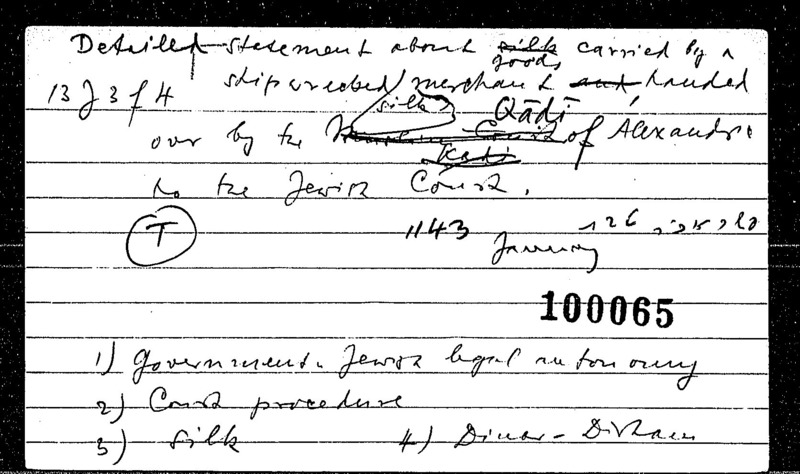 Detailed statement about silk goods carried by a
13 J 3 f 4 shipwrecked merchant and handed
silk Qāḍī
over by the Court of Alexandria
Kadi
to the Jewish Court.
T 1143 January 126
100065
1) Government. Jewish legal autonomy
2) Court procedure
3) Silk 4) Dinar - Dirhem